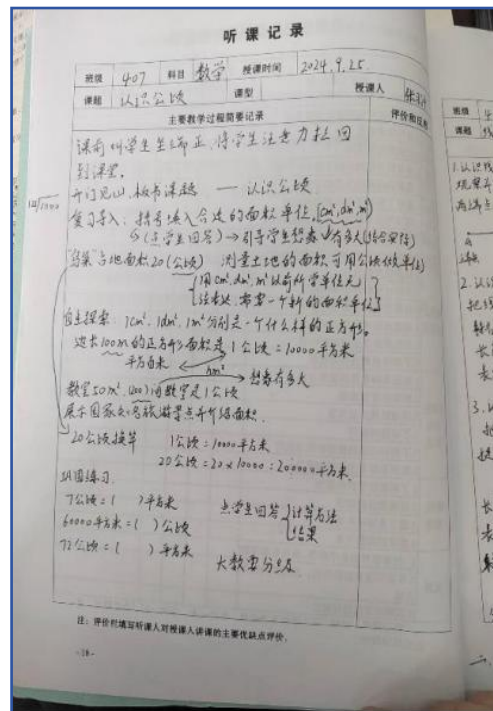 听课记录
班级 407 科目 数学 授课时间 2024.9.25.
课题 认识公顷 课型 授课人
主要教学过程简要记录 评价和
课前叫学生坐端正,将学生注意力拉回
到课堂。
开门见山,板书课题 —— 认识公顷
复习导入:括号填入合适的面积单位,(cm²,dm²,m²)
(点学生回答)→引导学生想象 有多大(结合实际)
“鸟巢”占地面积20(公顷) 测量土地的面积可用公顷做单位
用cm²,dm²,m²以前所学单位无
法表达,需要一个新的面积单位
自主探索:1cm²、1dm²、1m²分别是一个什么样的正方形。
边长100m的正方形面积是1公顷=10000平方米
平方百米 hm² 想象有多大
教室50m²,200间教室是1公顷
展示国家知名旅游景点并介绍面积.
20公顷换算 1公顷=10000平方米
20公顷=20×10000=200000平方米
巩固练习.
7公顷=( )平方米 点学生回答 计算方法
60000平方米=( )公顷 结果
72公顷=( )平方米
大数要分级
注:评价栏填写听课人对授课人讲课的主要优缺点评价。
班级
课题
1.认识
两端点
2.认识
把线
3.